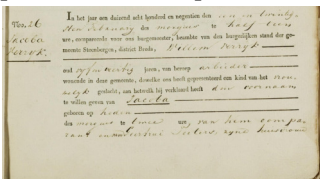 No. 26
Jacoba
Verryk.
In het jaar een duizend acht honderd en negentien den een en twintig-
sten February des morgens te half tien
ure, compareerde voor ons burgemeester, beambte van den burgerlijken stand der ge-
meente Steenbergen, district Breda, Willem Verryk
oud vyf en veertig jaren, van beroep arbeider
wonende in deze gemeente, dewelke ons heeft gepresenteerd een kind van het vrou-
welyk geslacht, aan hetwelk hij verklaard heeft den voornaam
te willen geven van Jacoba
geboren op heden
des morgens te twee ure, van hem compa-
rant en van zyne huisvrouw